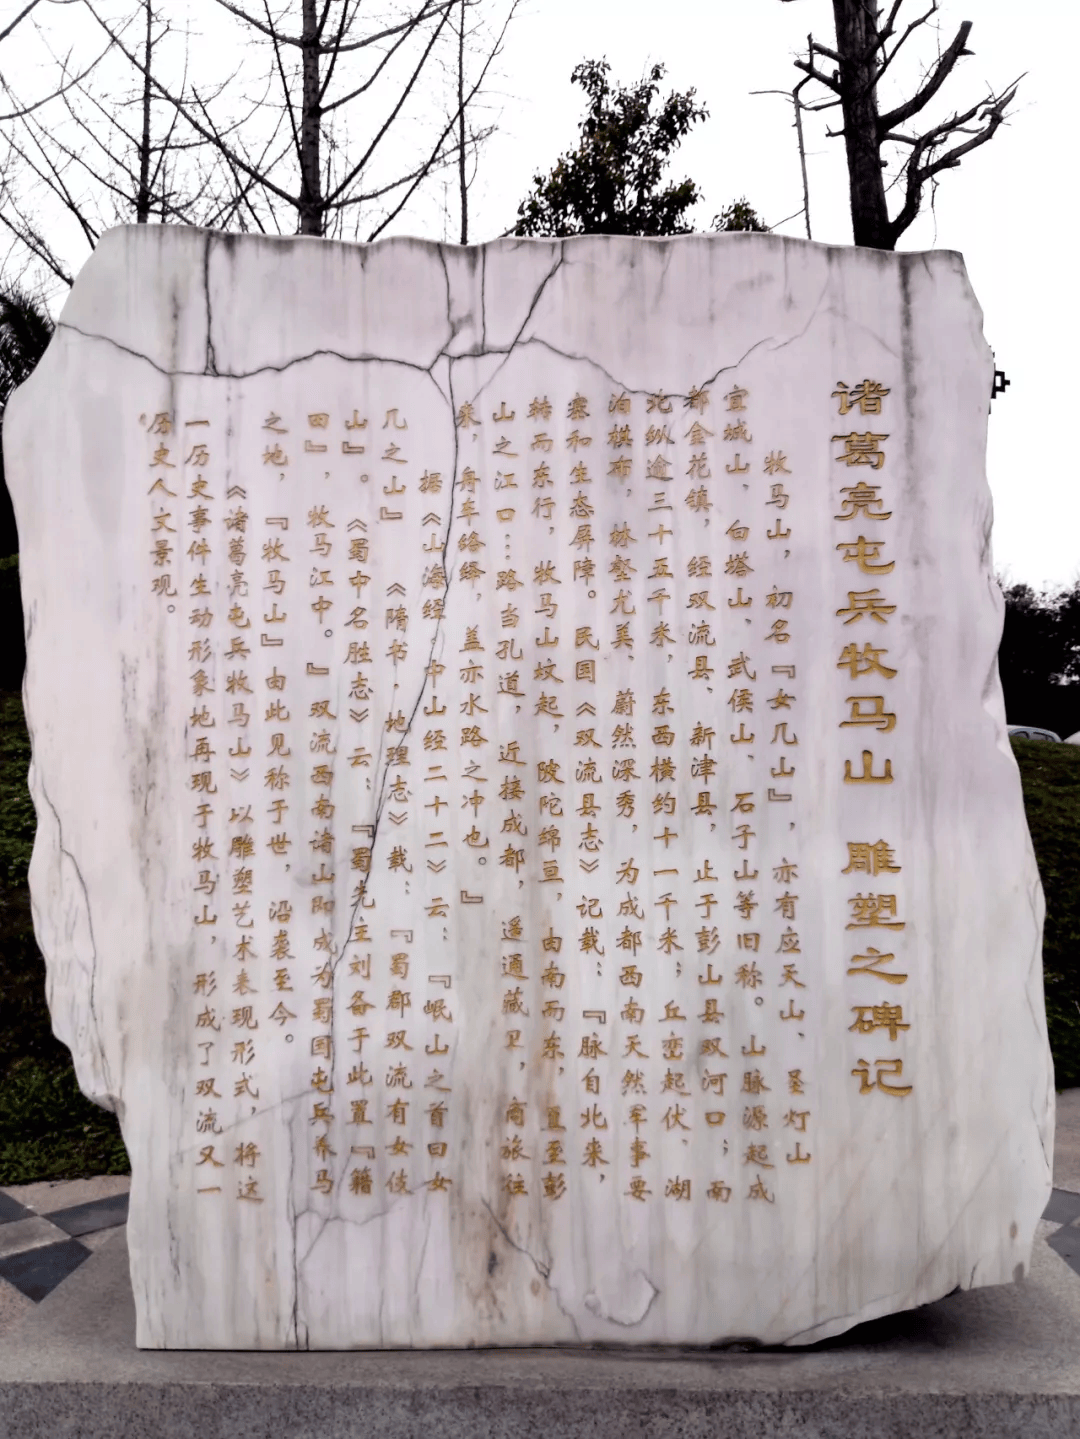 诸葛亮屯兵牧马山 雕塑之碑记
牧马山，初名『女几山』，亦有应天山、圣灯山
宜城山、白塔山、武侯山、石子山等旧称。山脉源起成
都金花镇，经双流县、新津县，止于彭山县双河口；南
北纵逾三十五千米，东西横约十一千米；丘峦起伏、湖
泊棋布，林壑尤美、蔚然深秀，为成都西南天然军事要
寨和生态屏障。民国《双流县志》记载：『脉自北来，
转而东行，牧马山蚊起，陂陀绵亘，由南而东，直至彭
山之江口…路当孔道，近接成都，遥通藏卫，商旅往
来，舟车络绎，盖亦水路之冲也。』
据《山海经·中山经二十二》云：『岷山之首曰女
几之山』《隋书·地理志》载：『蜀郡双流有女伎
山』。《蜀中名胜志》云：『蜀先主刘备于此置『籍
田』，牧马江中。』双流西南诸山即成为蜀国屯兵养马
之地，『牧马山』由此见称于世，沿袭至今。
《诸葛亮屯兵牧马山》以雕塑艺术表现形式，将这
一历史事件生动形象地再现于牧马山，形成了双流又一
历史人文景观。